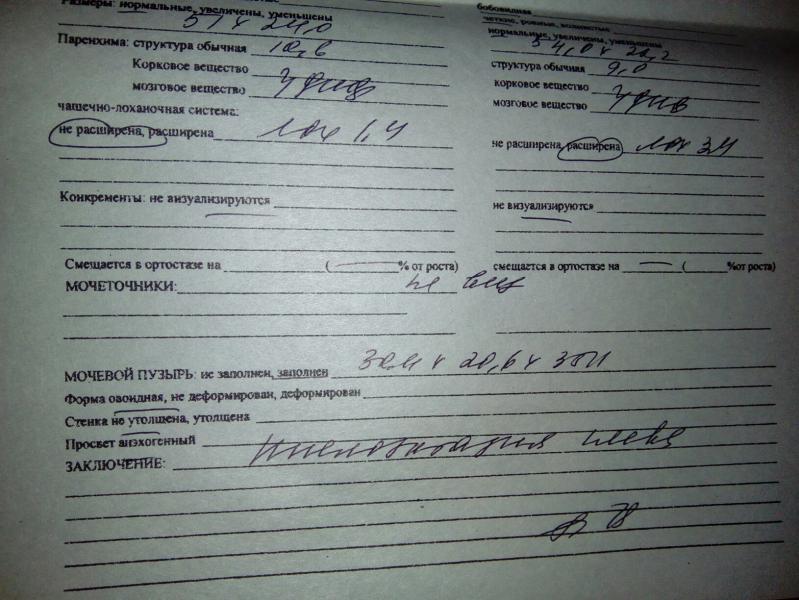 Размеры: нормальные, увеличены, уменьшены
51 х 24,0
Паренхима: структура обычная 10,6
Корковое вещество
мозговое вещество
чашечно-лоханочная система:
не расширена, расширена лох 1,4
Конкременты: не визуализируются
Смещается в ортостазе на ( % от роста)
бобовидная
четкие, ровные, волнистые
нормальные, увеличены, уменьшены
структура обычная 9,0
корковое вещество
мозговое вещество
не расширена, расширена лох 3,4
не визуализируются
смещается в ортостазе на ( %от роста)
МОЧЕТОЧНИКИ: не виз
МОЧЕВОЙ ПУЗЫРЬ: не заполнен, заполнен
Форма овоидная, не деформирован, деформирован
Стенка не утолщена, утолщена
Просвет анэхогенный
ЗАКЛЮЧЕНИЕ: пиелоэктазия слева